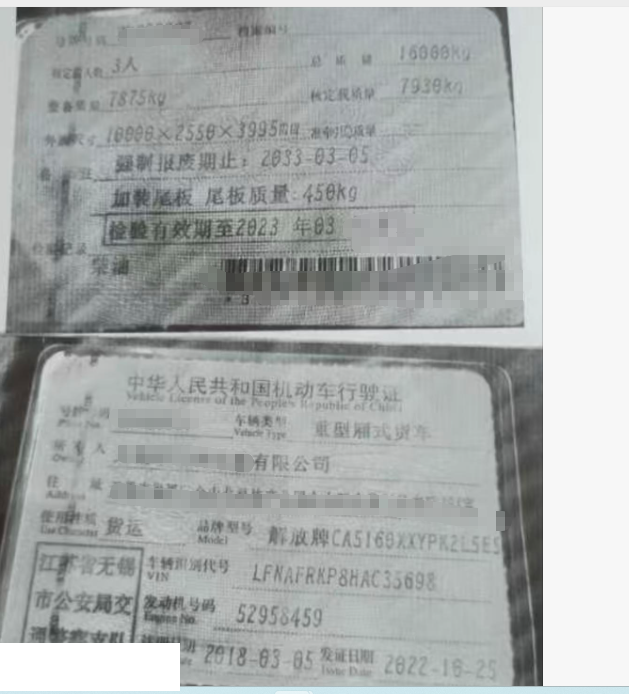 号牌号码 档案编号
核定载人数 3人 总质量 16000kg
整备质量 7875kg 核定载质量 7930kg
外廓尺寸 10000×2550×3995mm 准牵引总质量
备注 强制报废期止：2033-03-05
加装尾板 尾板质量:450kg
检验有效期至2023 年03
检验记录
柴油
中华人民共和国机动车行驶证
Vehicle License of the People's Republic of China
号牌号码 车辆类型 重型厢式货车
Plate No. Vehicle Type
所有人 有限公司
Owner
住址
Address
使用性质 货运 品牌型号 解放牌CA5160XXYPK2L5E5
Use Character Model
江苏省无锡 车辆识别代号 LFNAFRKP8HAC35698
VIN
市公安局交 发动机号码 52958459
Engine No.
通警察支队 注册日期 2018-03-05 发证日期 2022-10-25
Issue Date